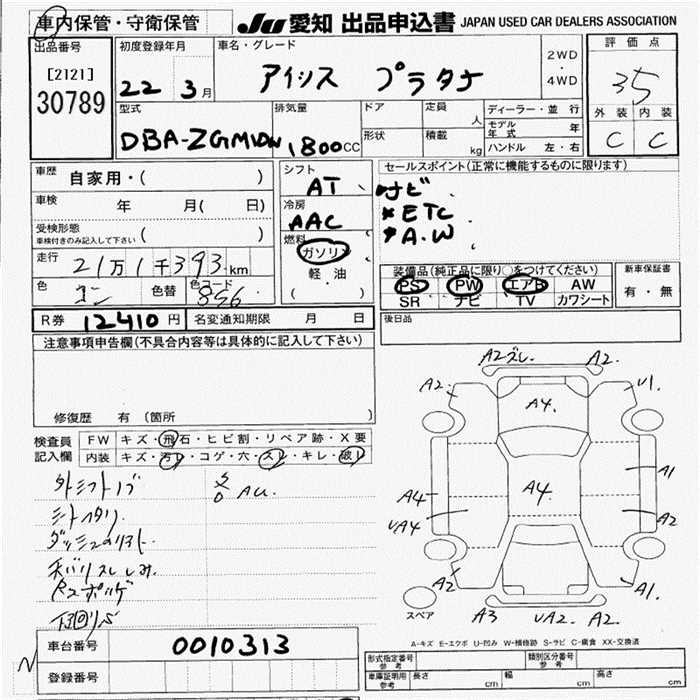 車内保管・守衛保管 JU 愛知 出品申込書 JAPAN USED CAR DEALERS ASSOCIATION
出品番号 初度登録年月 車名・グレード 評価点
[2121] 22 3月 アイシス プラタナ 2WD・4WD 3.5
30789 型式 排気量 ドア 定員 人 ディーラー・並行 外装 内装
モデル年式 年
DBA-ZGM10W 1800CC 形状 積載 kg ハンドル 左・右 C C
車歴 自家用・( ) シフト AT セールスポイント(正常に機能するものに限ります)
車検 年 月( 日) 冷房 AAC ナビ
受検形態 ( ) *ETC
車検付きのみ記入して下さい 燃料 ガソリン *A.W
走行 21万1千393km 軽油 装備品(純正品に限り○をつけてください) 新車保証書
色 色替 色コード ( ) PS PW エアB AW 有・無
SR ナビ TV カワシート
R券 12410円 名変通知期限 月 日 後日品
注意事項申告欄(不具合内容等は具体的に記入して下さい)
A2ズレ. A2.
A2. U1.
A4.
修復歴 有(箇所 )
検査員 FW キズ・飛石・ヒビ割・リペア跡・X要
記入欄 内装 キズ・汚れ・コゲ・穴・スレ・キレ・破レ
A1
外シフトノブ AU.
A4 A4. A2
シートヘタリ. UA4
A2 A1.
スペア A3 UA2. A2.
車台番号 0010313 A-キズ E-エクボ U-凹み W-補修跡 S-サビ C-腐食 XX-交換済
登録番号 形式指定番号 参考 類別区分番号 参考
車庫証明用 参考 長さ cm 幅 cm 高さ cm